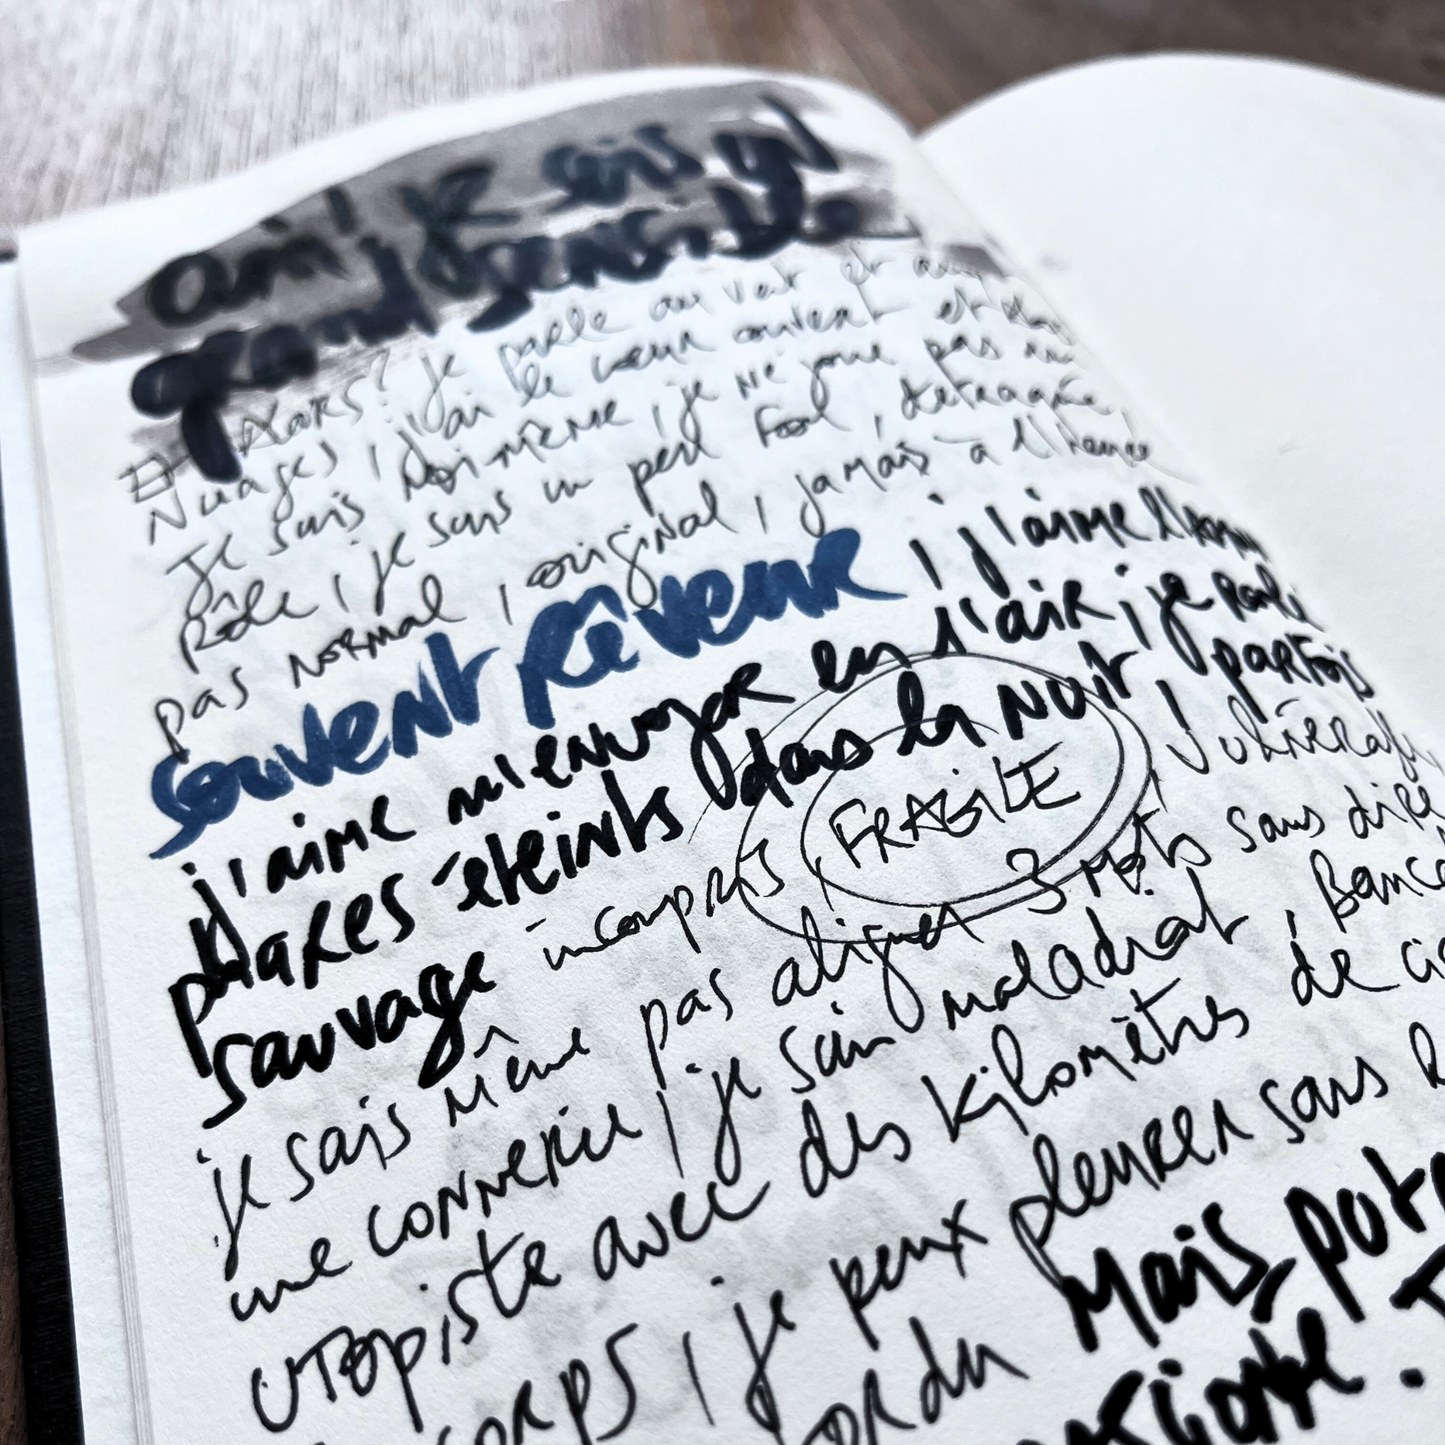 ami, je suis un
grand sensible
Et alors? je parle au vent et aux
Nuages, j'ai le cœur ouvert et
Je suis moi-même, je ne joue pas
rôle, je suis un peu fou, détraqué,
pas normal, original, jamais à l'heure
souvent rêveur, j'aime
j'aime m'envoyer en l'air, je roule
phares éteints dans la nuit, parfois
sauvage incompris, FRAGILE, vulnérable
je sais même pas aligner 3 mots sans dire
une connerie, je suis maladroit,
utopiste avec des kilomètres de
corps, je peux pleurer sans
Mais